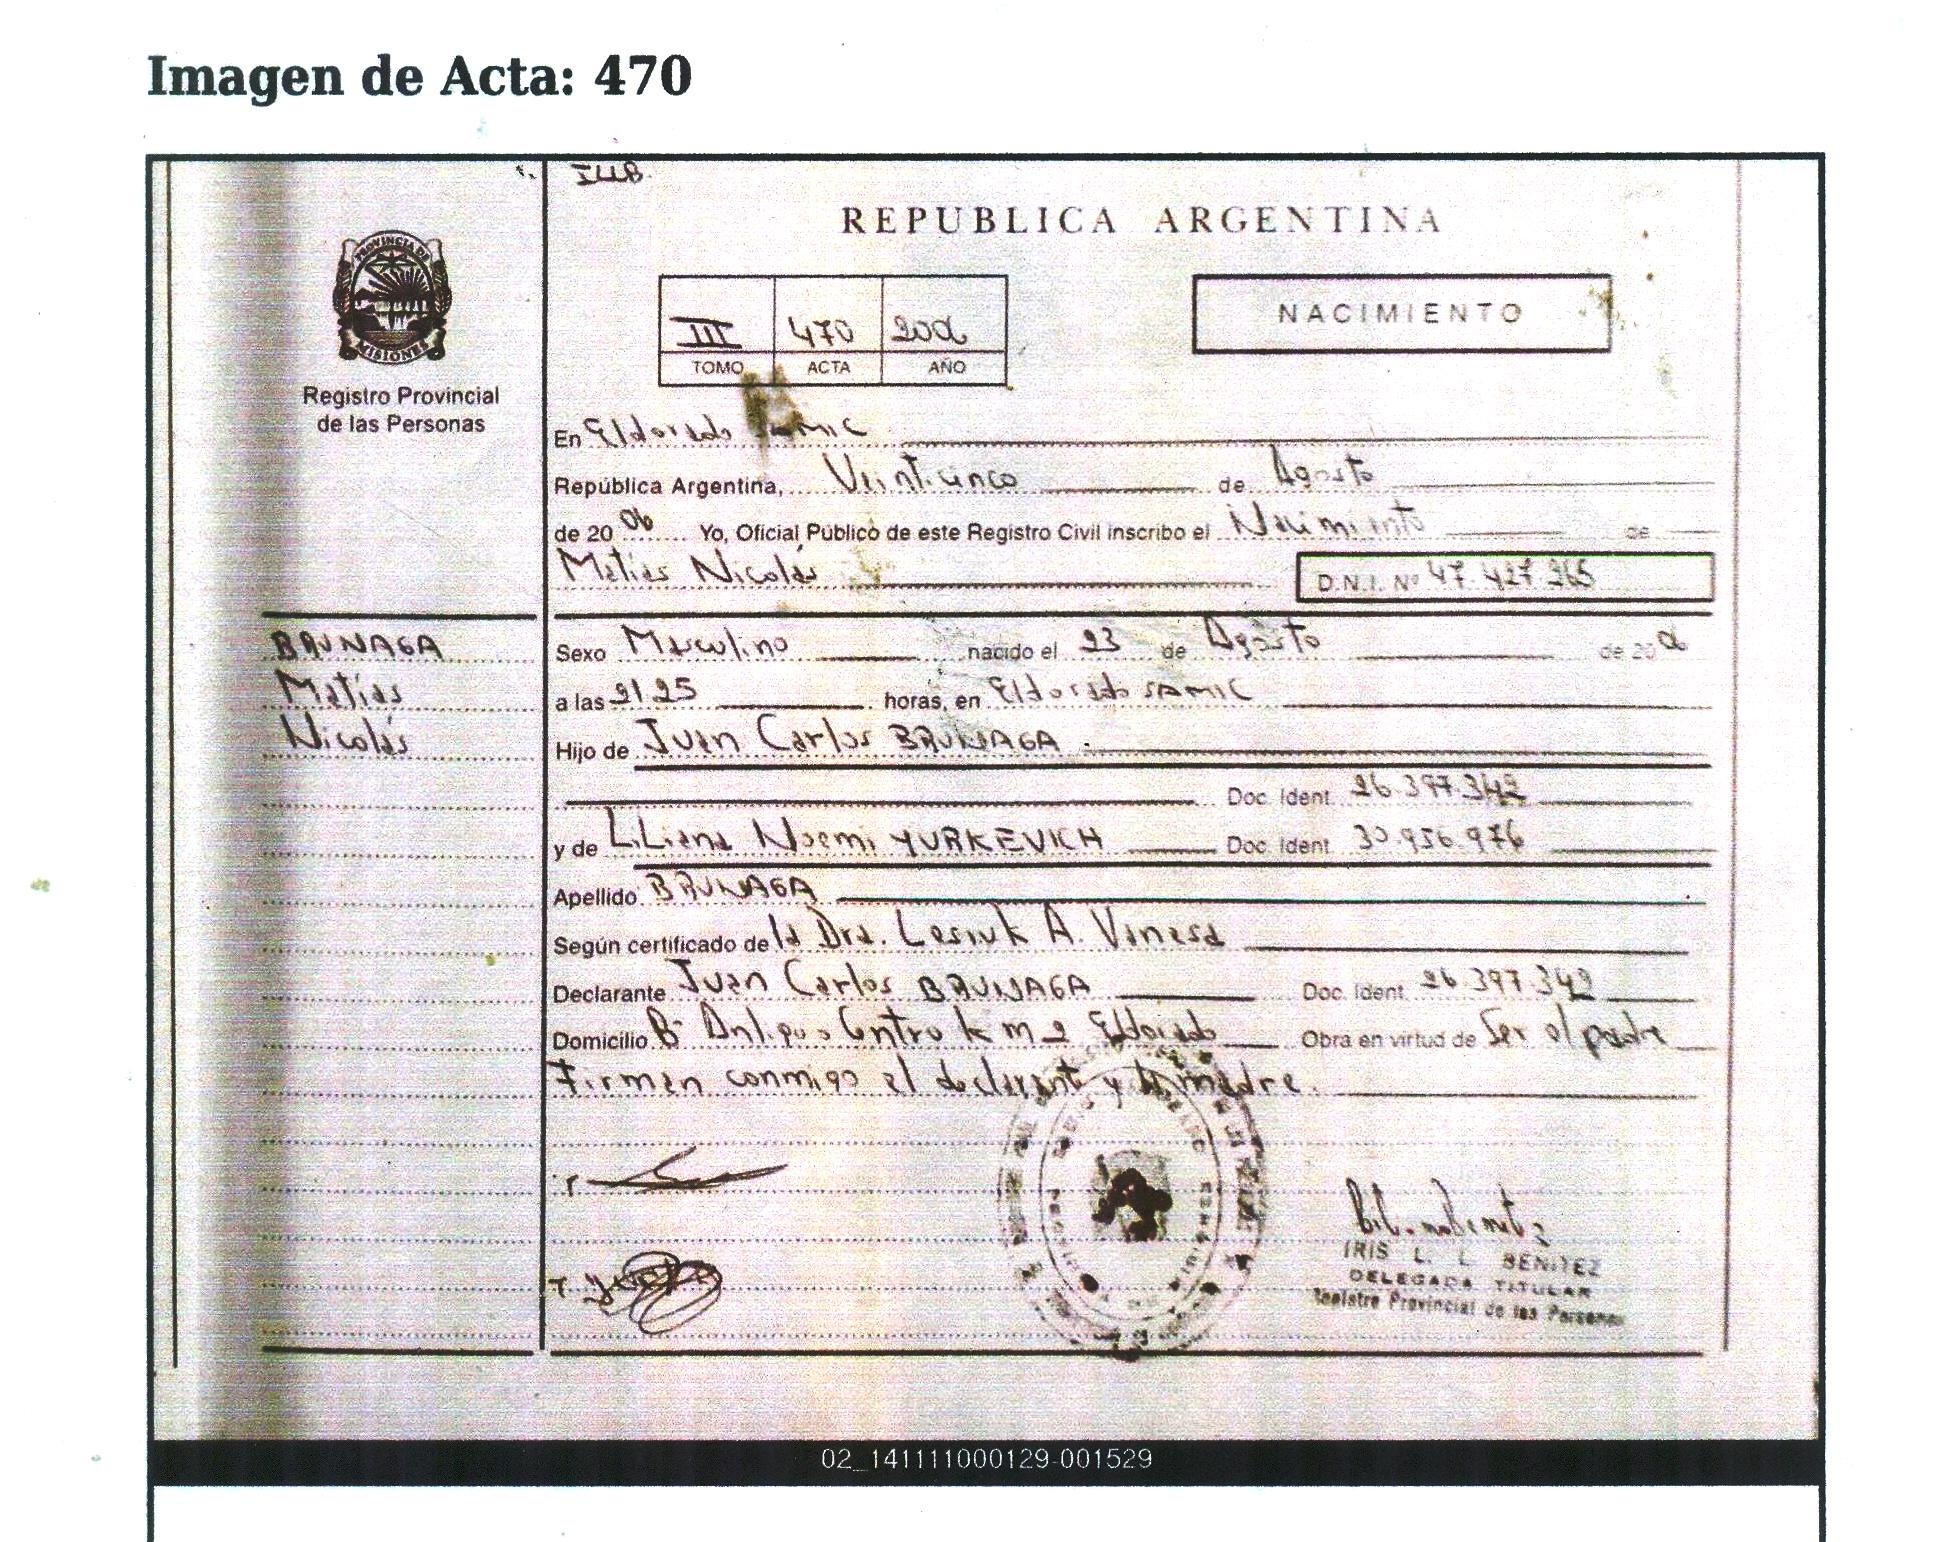 Imagen de Acta: 470
ILLB.
REPUBLICA ARGENTINA
PROVINCIA DE
MISIONES
Registro Provincial
de las Personas
III 470 2006
TOMO ACTA AÑO
NACIMIENTO
En Eldorado SAMIC
República Argentina, Veinticinco de Agosto
de 20 06 Yo, Oficial Público de este Registro Civil inscribo el Nacimiento de
Matías Nicolás D.N.I. Nº 47.427.265
BRUNAGA
Matías
Nicolás
Sexo Masculino nacido el 23 de Agosto de 2006
a las 21 25 horas, en Eldorado SAMIC
Hijo de Juan Carlos BRUNAGA
Doc. Ident. 26.397.342
y de Liliana Noemi YURKEVICH Doc. Ident. 30.956.976
Apellido BRUNAGA
Según certificado de la Dra. Lesiuk A. Vanesa
Declarante Juan Carlos BRUNAGA Doc. Ident. 26.397.342
Domicilio Bº Antiguo Centro km 2 Eldorado Obra en virtud de Ser el padre
Firman conmigo el declarante y la madre.
IRIS L. L. BENITEZ
DELEGADA TITULAR
Registro Provincial de las Personas
02_141111000129-001529